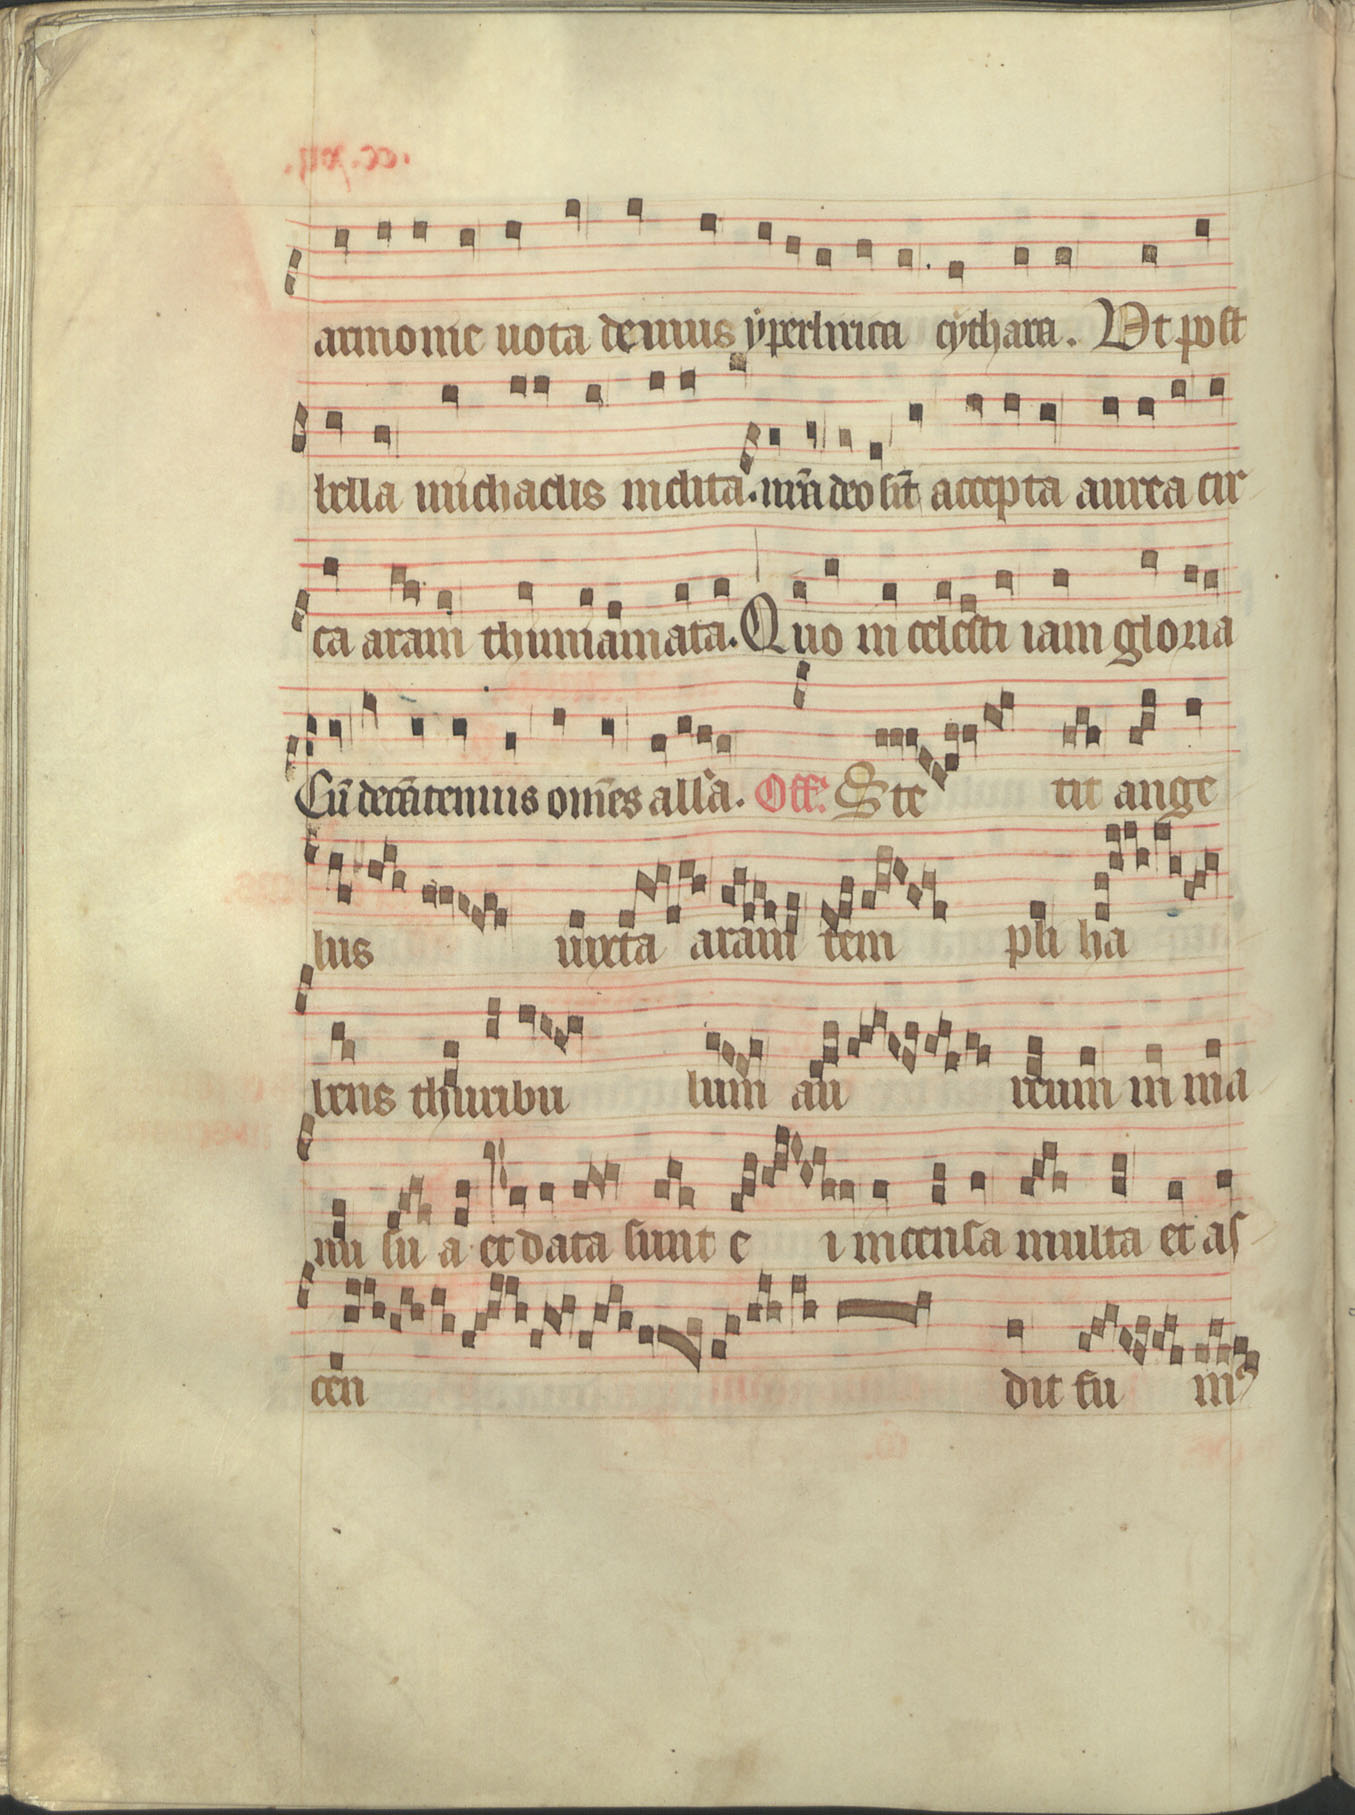 armonie uota demus ẏperlirica cẏthara. Vt post
bella michaelis inclita. nr̄a deo sīt accepta aurea cir
ca aram thimiamata. Quo in celesti iam gloria
Cū decātemus om̄es all'a. Off. Ste tit ange
lus iuxta aram tem pli ha
bens thuribu lum au reum in ma
nu su a et data sunt e i incensa multa et as
cen dit fu mꝰ